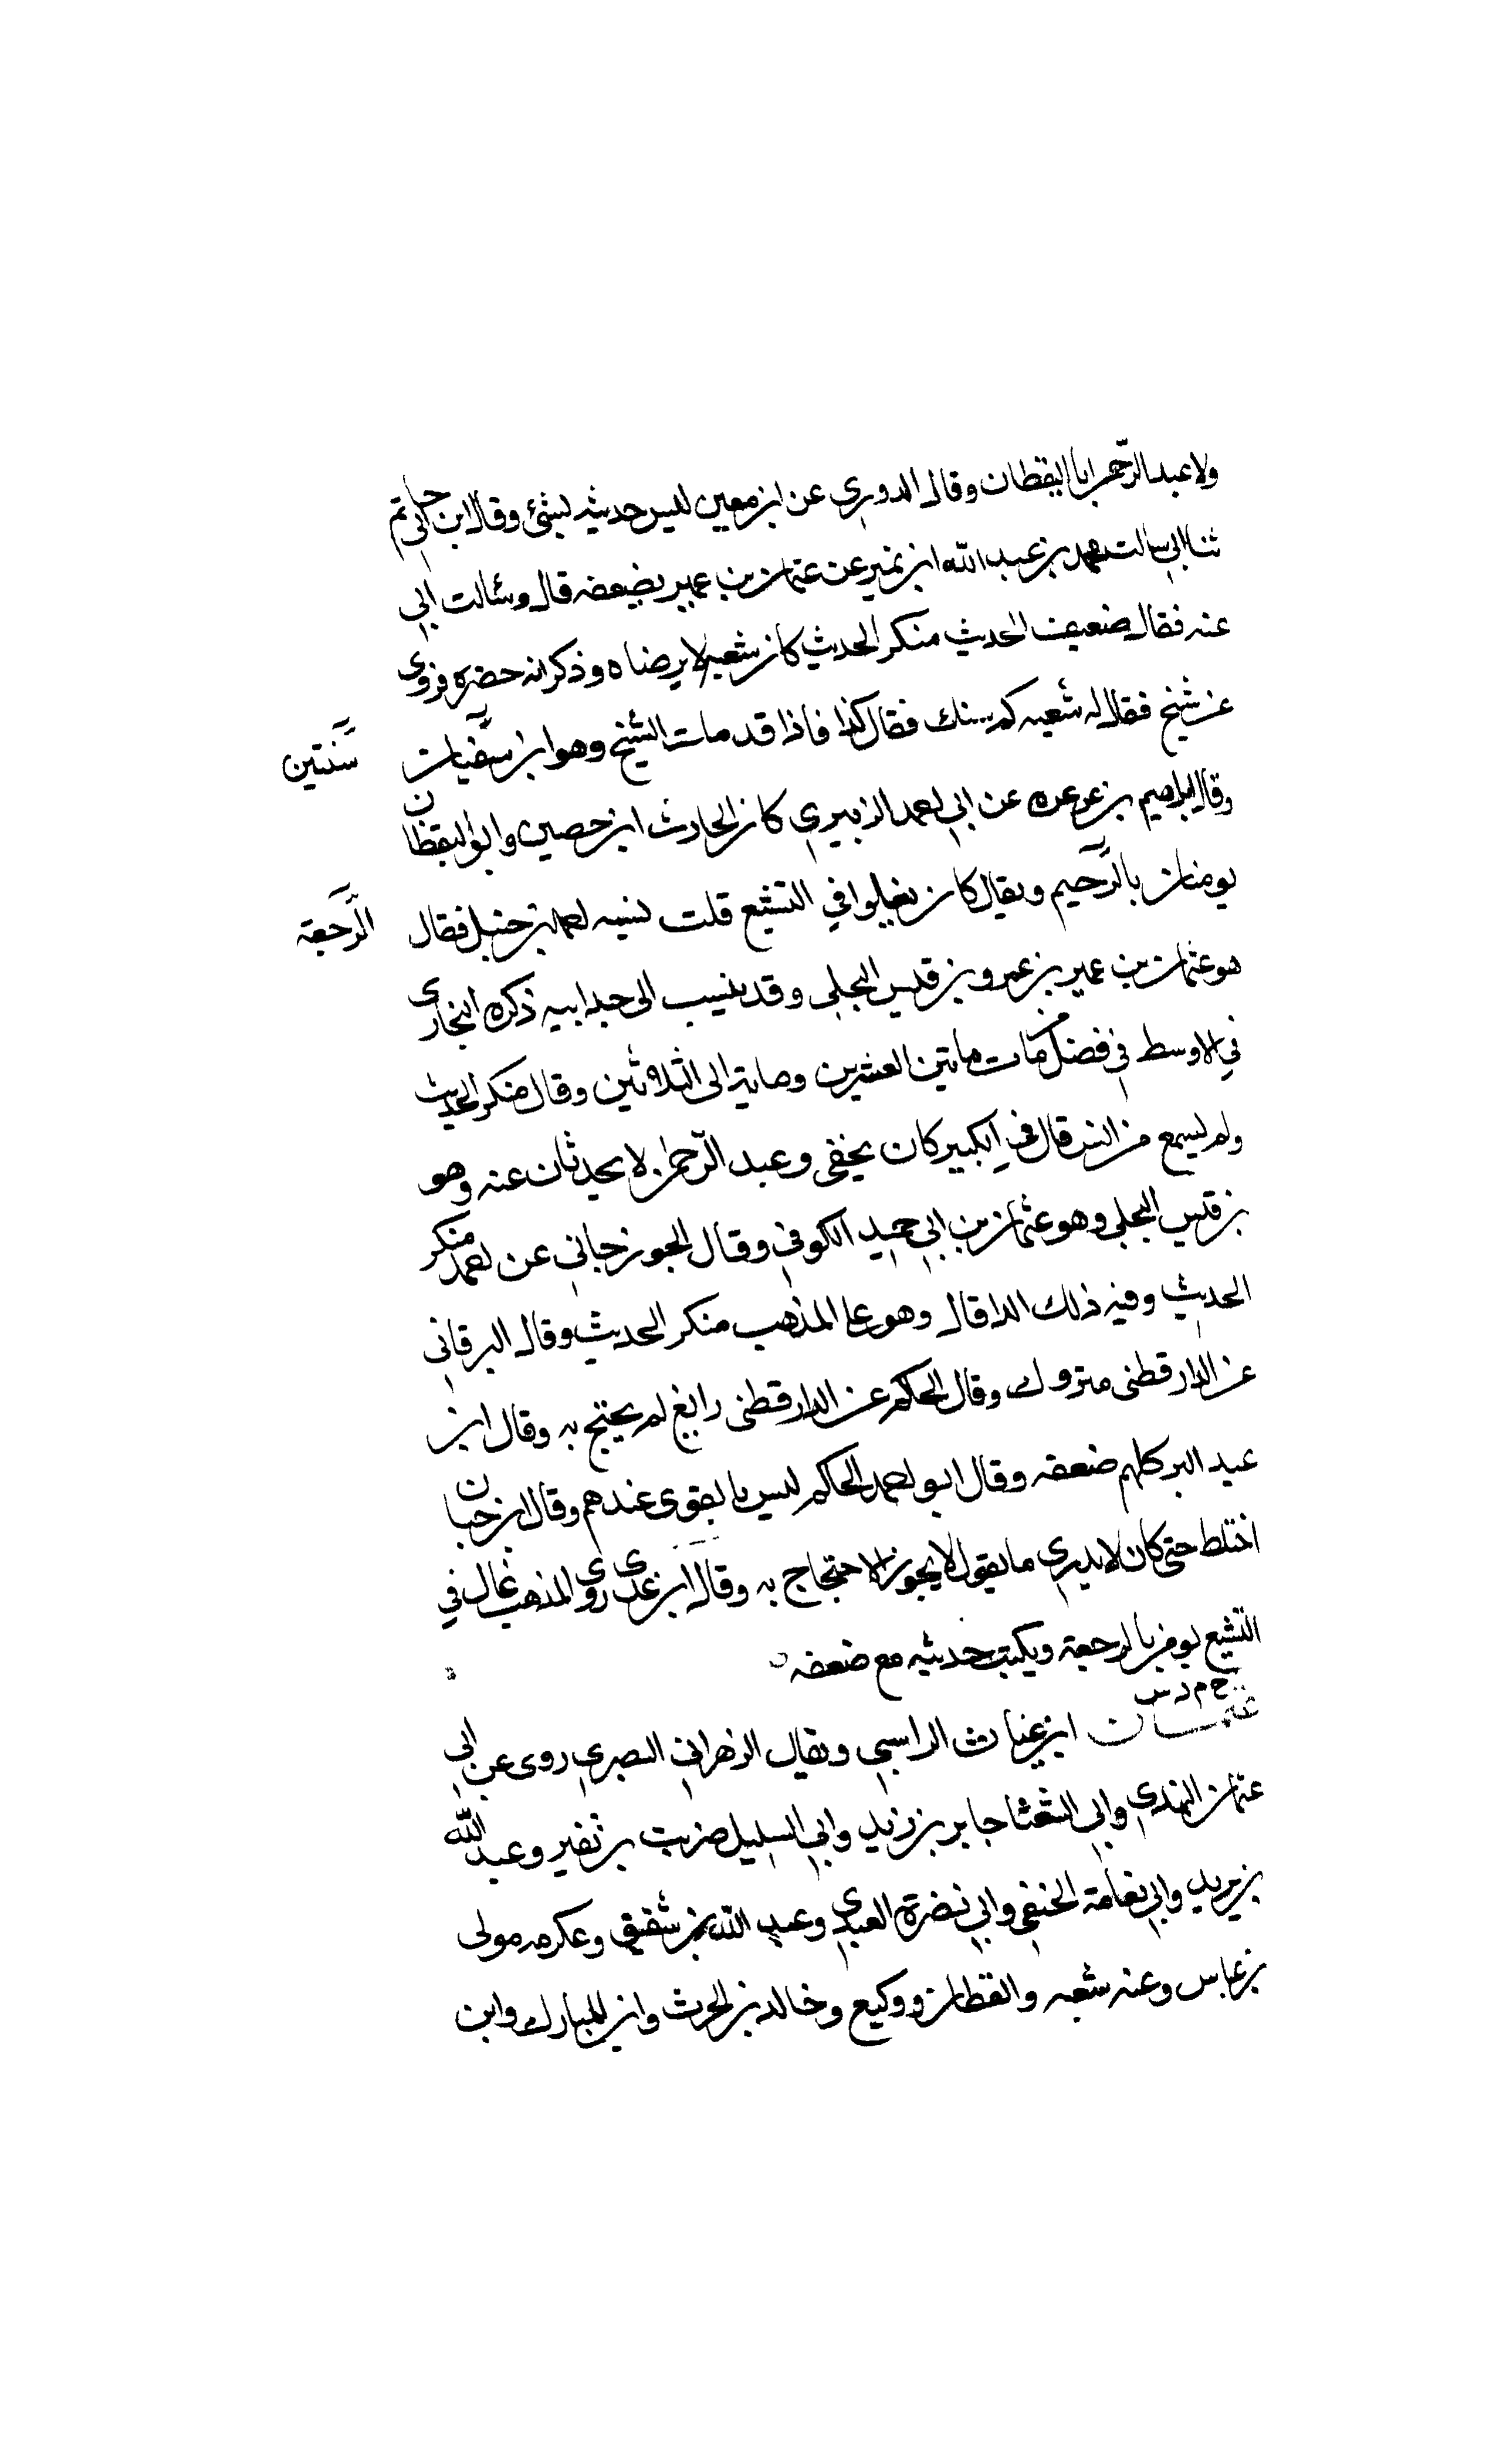 ولا عبد الرحمن ابا اليقظان وقال الدوري عن ابن معين ليس حديثه بشئ وقال ابن ابي حاتم
ثنا ابي سالت محمد بن عبد الله ابن نمير عن عثمان بن عمير يضعفه قال وسألت ابي
عنه فقال ضعيف الحديث منكر الحديث كان شعبه لا يرضاه وذكر انه حضره فروى
عن شيخ فقال له شعبه كم سنك فقال كذا فاذا قد مات الشيخ وهو ابن سفيات سنتين
وقال ابراهيم بن عرعره عن ابي احمد الزبيري كان الحارث ابن حصين وابو اليقظان
يومنان بالرحيم ويقال كان يغلوا في التشيع قلت نسبه احمد بن حنبل فقال الرجعة
هو عثمان بن عمير بن عمرو بن قيس البجلي وقد ينسب الى جد ابيه ذكره البخارى
في الاوسط في فضل من مات ما بين العشرين وماية الى الثلاثين وقال منكر الحديث
ولم يسمع من انس قال في الكبير كان يحيى وعبد الرحمن لا يحدثان عنه وهو
بن قيس البجلي وهو عثمان بن ابي حميد الكوفي وقال الجوزجاني عن احمد منكر
الحديث وفيه ذلك الدا قال وهو على المذهب منكر الحديث وقال البرقاني
عن الدارقطنى متروك وقال الحاكم عن الدارقطنى زايغ لم يحتج به وقال ابن
عبد البر كلهم ضعفه وقال ابو احمد الحاكم ليس بالقوى عندهم وقال ابن حبان
اختلط حتى كان لا يدري ما يقول لا يجوز الاحتجاج به وقال ابن عدى روى المذهب غال في
التشيع يومن بالرجعة ويكتب حديثه مع ضعفه
خ م د س
عثمان ابن غياث الراسبي ويقال الزهراني البصري روى عن ابي
عثمان النهدي وابي الشعثا جابر بن زيد وابي السليل ضريب بن نفير وعبد الله
بن بريد وابي نعامة الحنفي وابي نضرة العبدي وعبد الله بن شقيق وعكرمه مولى
بن عباس وعنه شعبه والقطان ووكيع وخالد بن الحرث وابن المبارك وابن